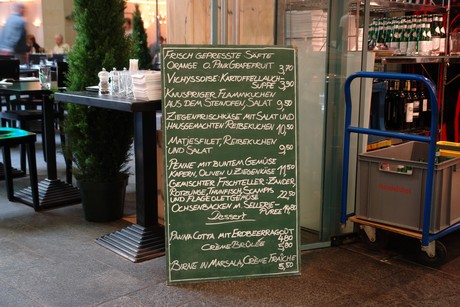 Frisch gepresste Säfte
Orange o. Pink Grapefruit 3,70
Vichyssoise: Kartoffellauch-
suppe 3,80
Knuspriger, Flammkuchen
aus dem Steinofen, Salat 9,50
Ziegenfrischkäse mit Salat und
hausgemachten Reibekuchen 10,50
Matjesfilet, Reibekuchen
und Salat 9,50
Penne mit buntem Gemüse
Kapern, Oliven u. Ziegenkäse 11,50
Gemischter, Frischteller: Zander,
Rotzunge, Thunfisch, Scamps
und Flageoletgemüse 22,50
Ochsenbacken m. Sellerie-
püree 14,80
Dessert
Panna Cotta mit Erdbeerragoût 4,80
Crème Brûlée 5,80
Birne in Marsala, Crème Fraîche 5,50